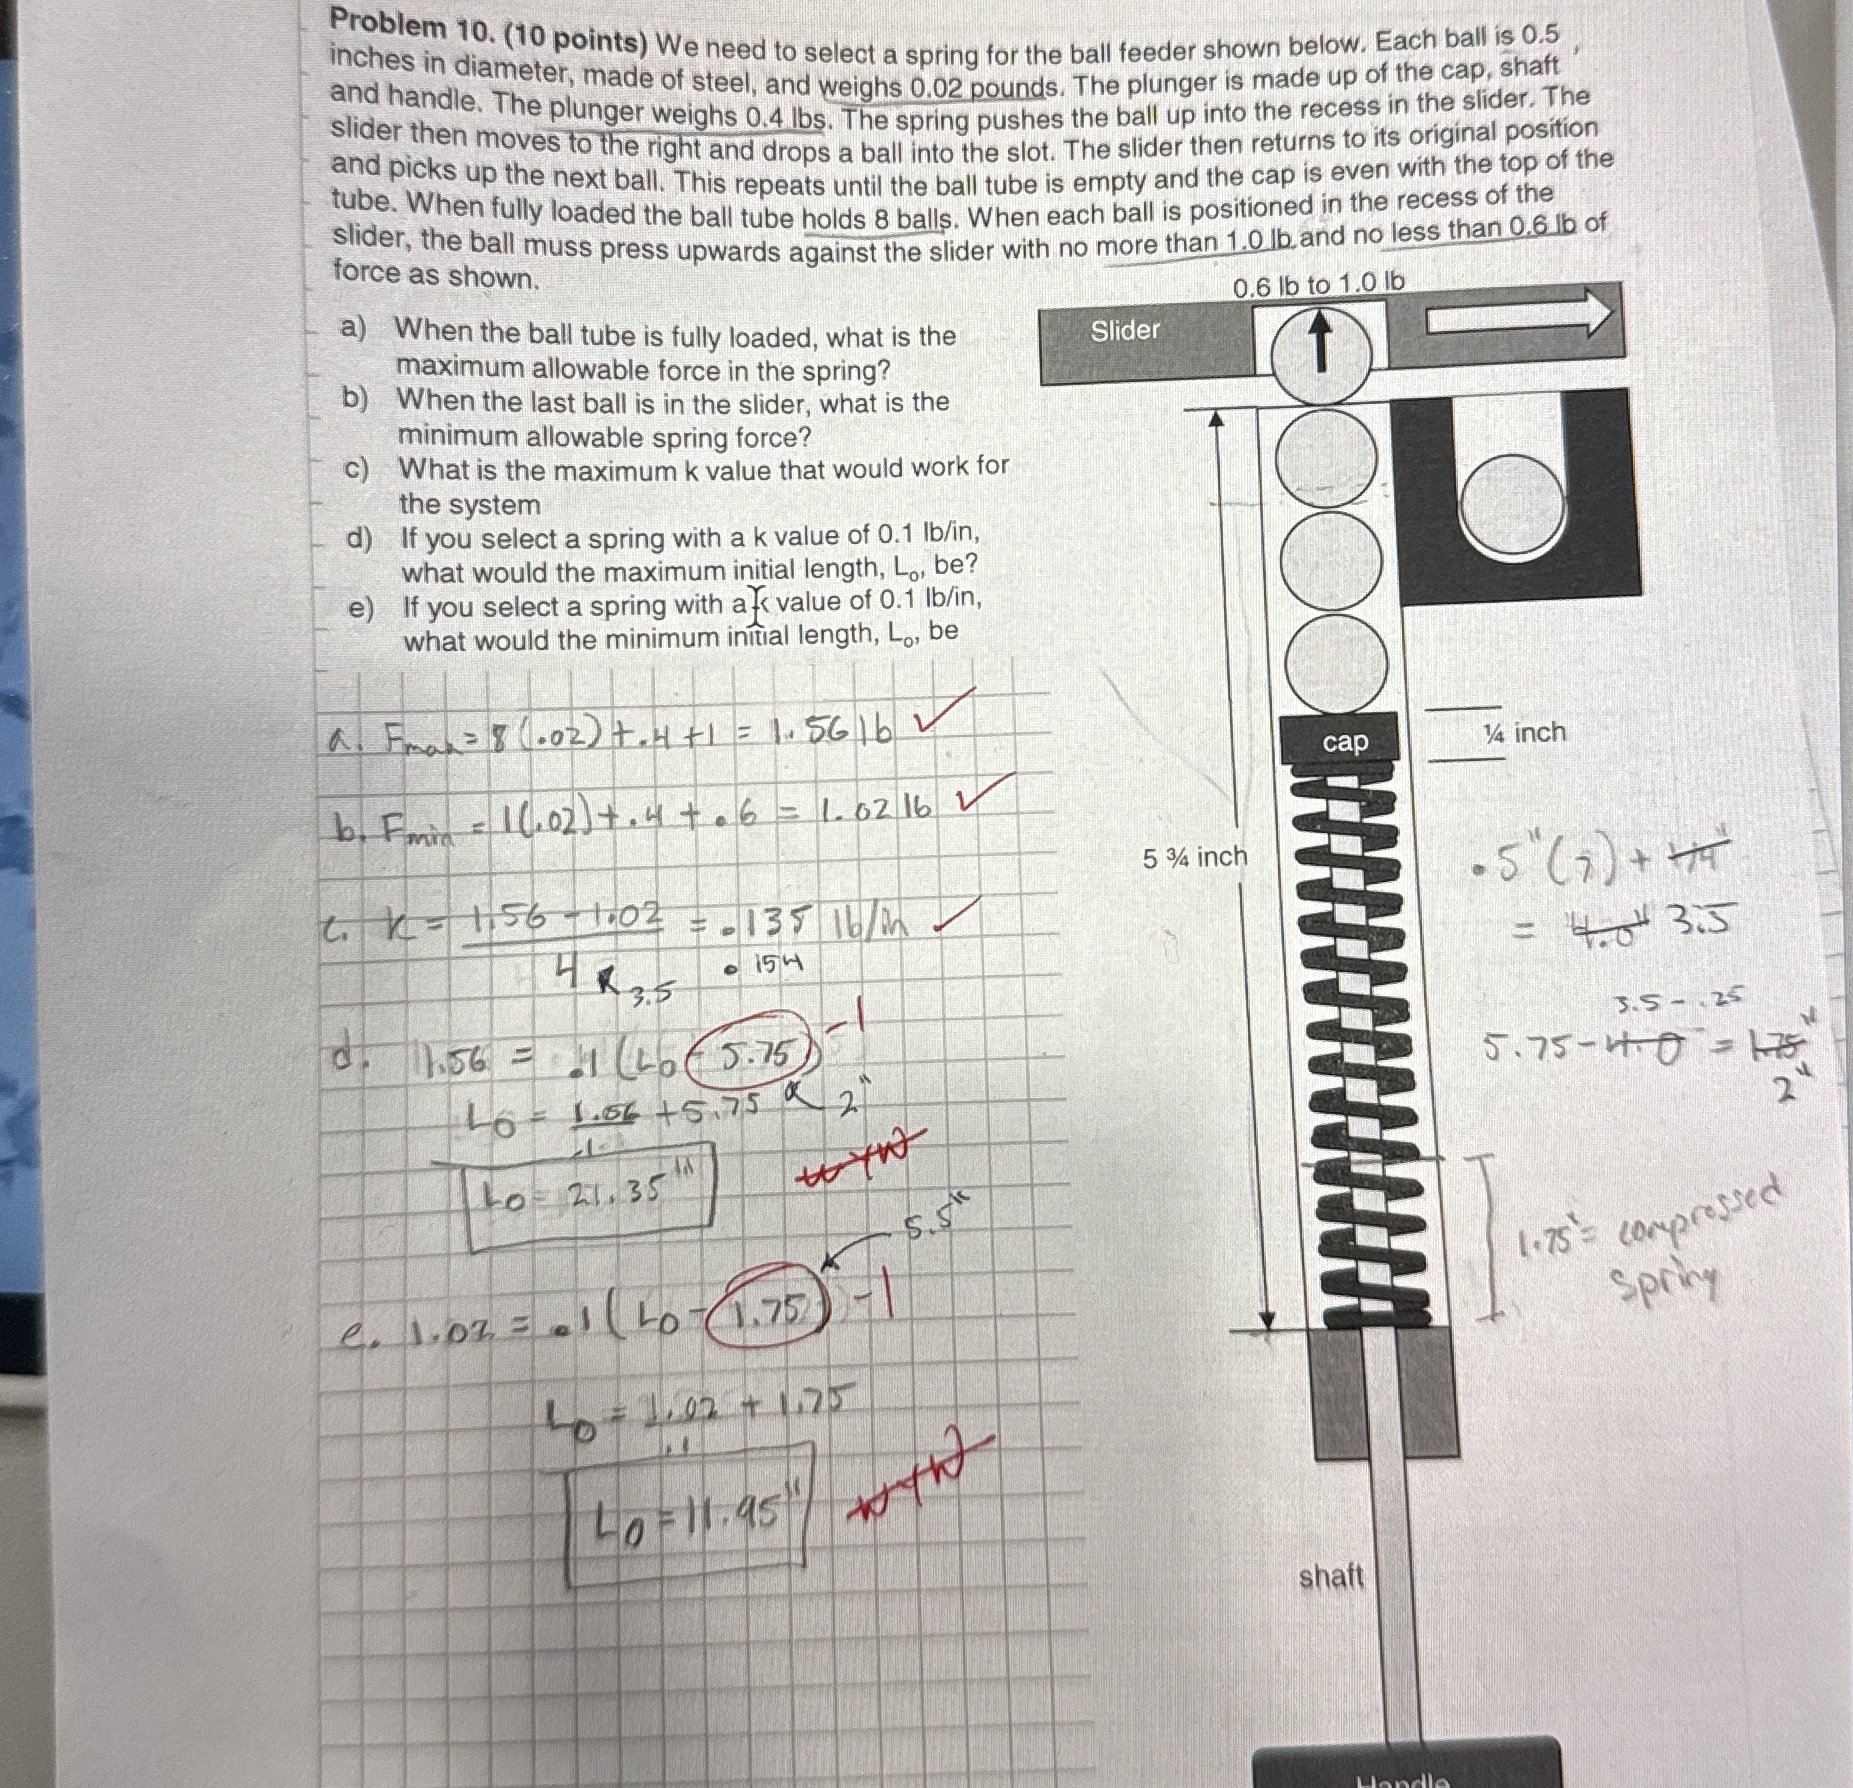 Problem 10. (10 points) We need to select a spring for the ball feeder shown below. Each ball is 0.5
inches in diameter, made of steel, and weighs 0.02 pounds. The plunger is made up of the cap, shaft
and handle. The plunger weighs 0.4 lbs. The spring pushes the ball up into the recess in the slider. The
slider then moves to the right and drops a ball into the slot. The slider then returns to its original position
and picks up the next ball. This repeats until the ball tube is empty and the cap is even with the top of the
tube. When fully loaded the ball tube holds 8 balls. When each ball is positioned in the recess of the
slider, the ball muss press upwards against the slider with no more than 1.0 lb and no less than 0.6 lb of
force as shown.
0.6 lb to 1.0 lb
Slider
a) When the ball tube is fully loaded, what is the
maximum allowable force in the spring?
b) When the last ball is in the slider, what is the
minimum allowable spring force?
c) What is the maximum k value that would work for
the system
d) If you select a spring with a k value of 0.1 lb/in,
what would the maximum initial length, L₀, be?
e) If you select a spring with a k value of 0.1 lb/in,
what would the minimum initial length, L₀, be
cap
¼ inch
5 ¾ inch
a. Fmax = 8(.02)+.4+1 = 1.56 lb ✓
b. Fmin = 1(.02)+.4+.6 = 1.02 lb ✓
.5"(7) + 1/4"
= 4.0" 3.5
c. K = 1.56-1.02 = .135 lb/in ✓
4 3.5 .154
3.5 - .25
5.75-4.0 = 1.75"
2"
d. 1.56 = .1(L0-5.75) -1
L0 = 1.56 +5.75 2"
.1
L0 = 21.35"
5.5"
1.75" = compressed
spring
e. 1.02 = .1(L0-1.75) -1
L0 = 1.02 + 1.75
.1
L0 = 11.95"
shaft
Handle